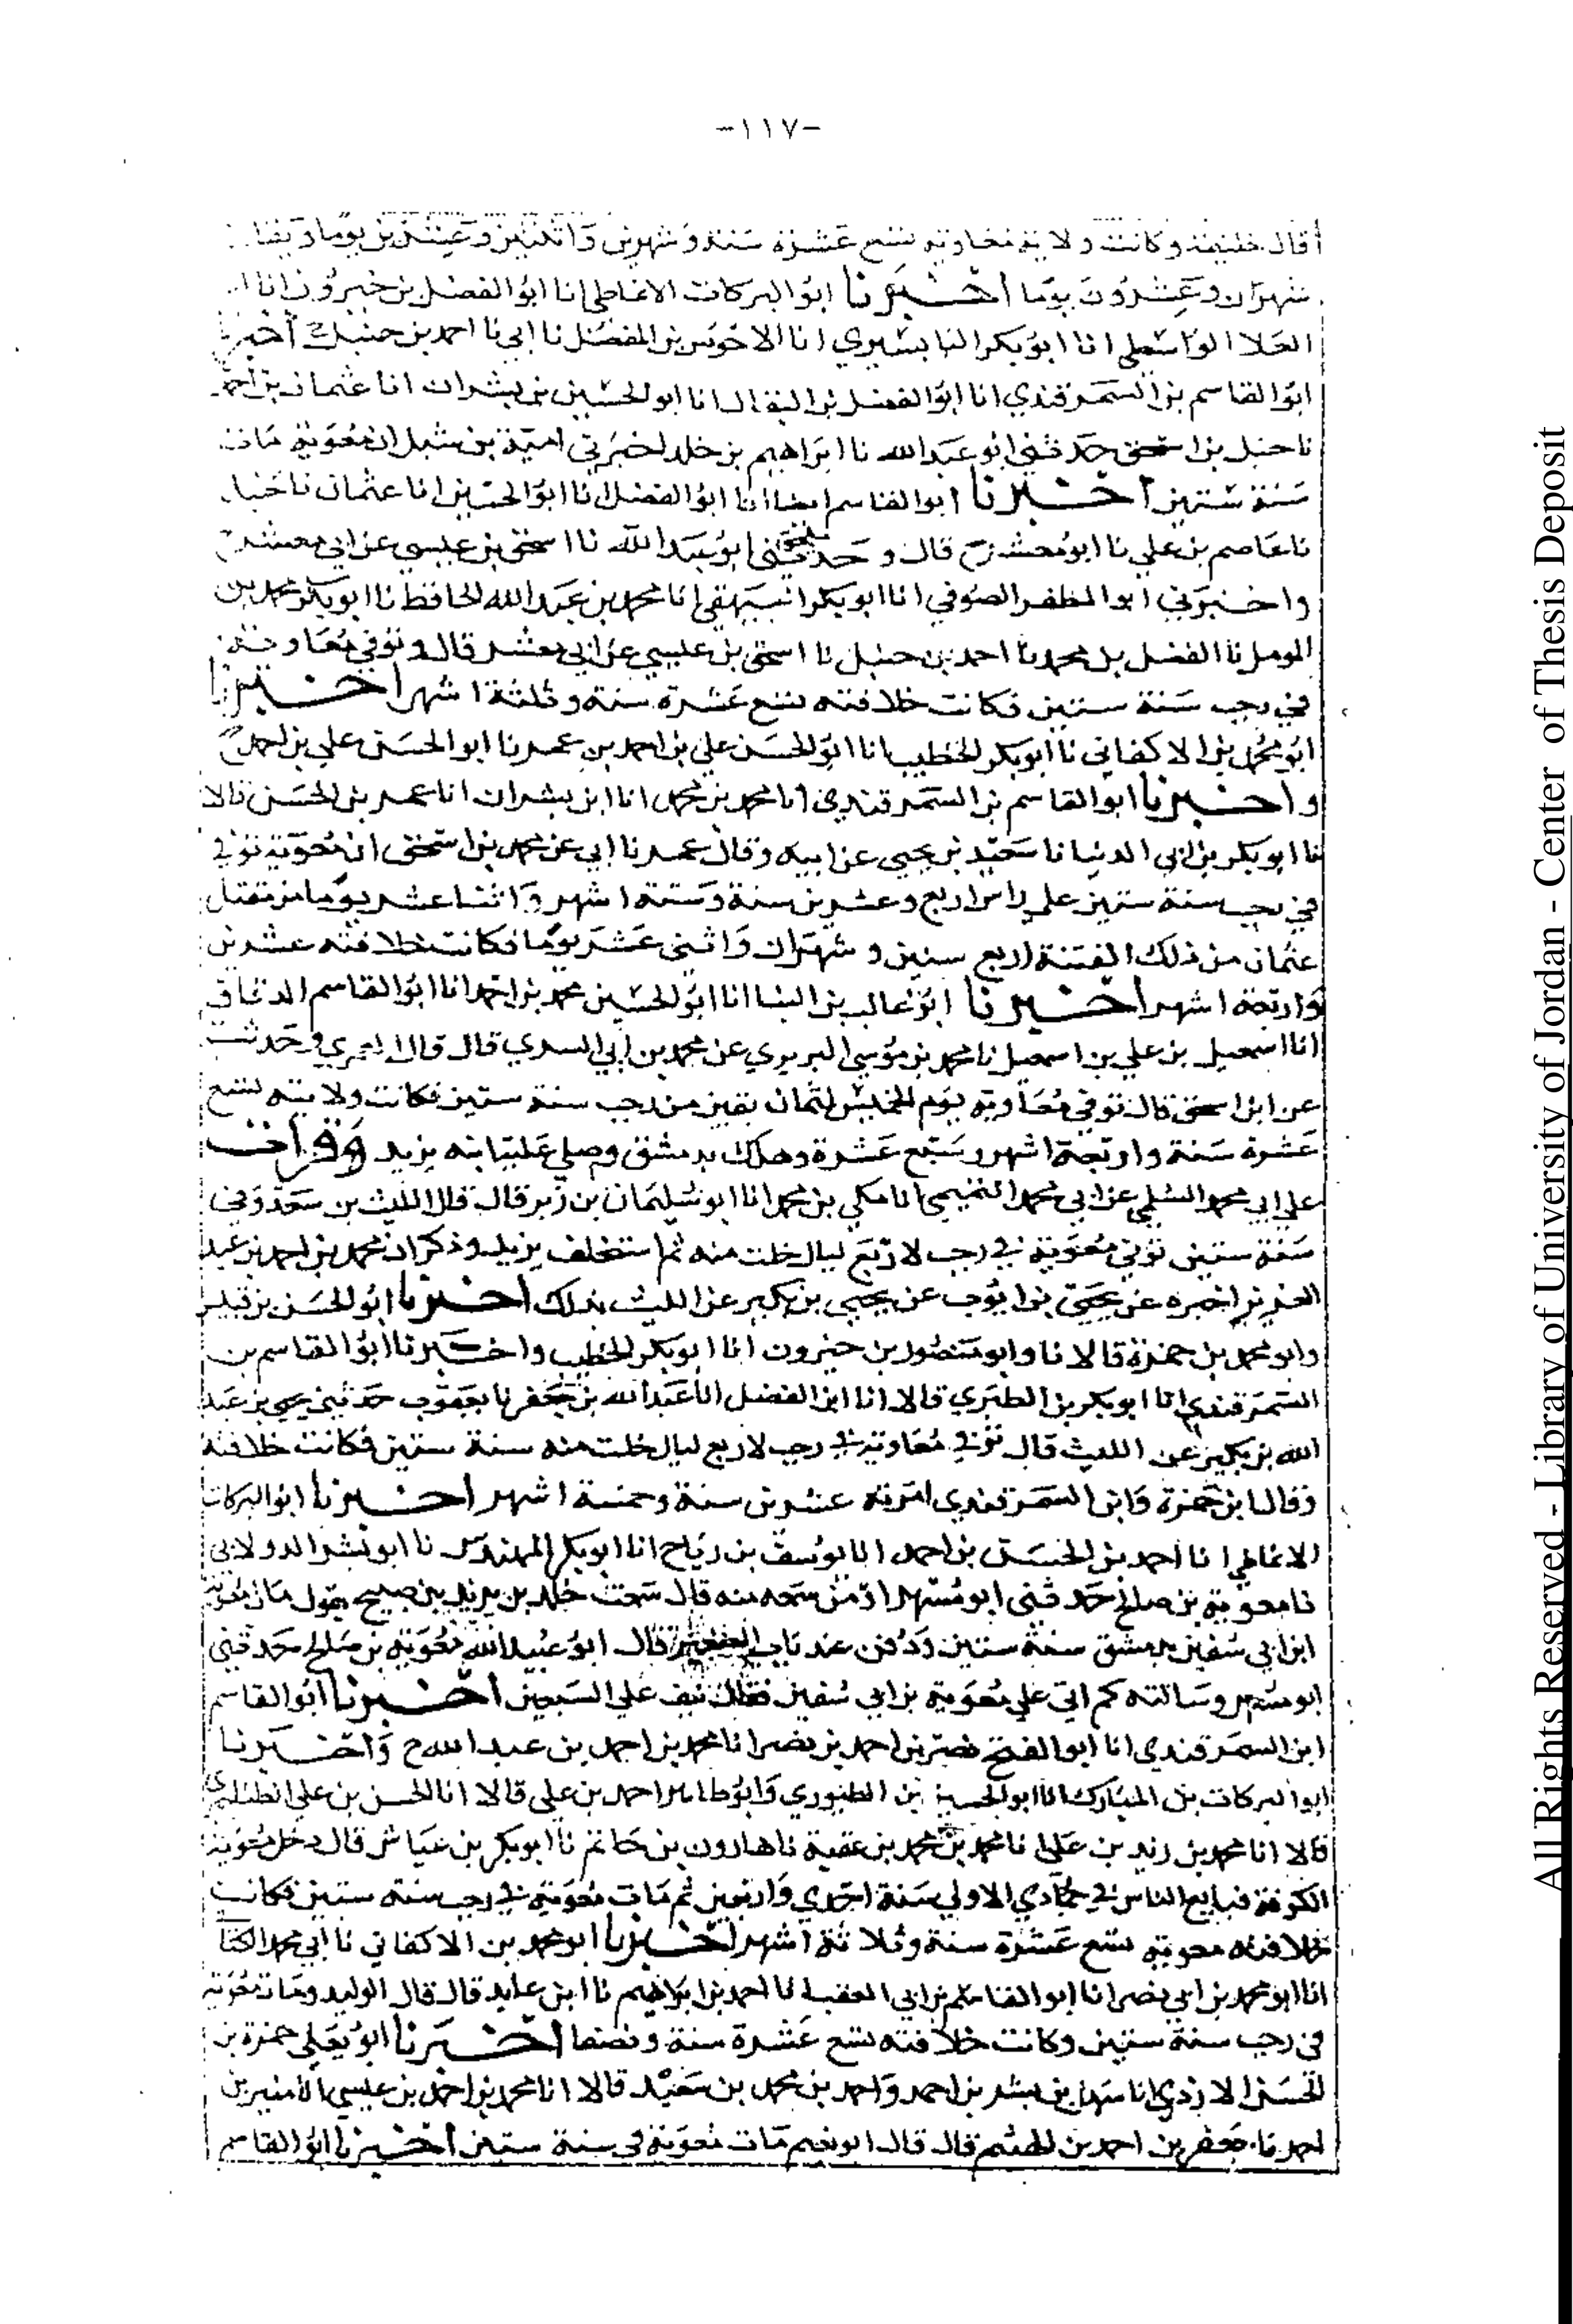 -١١٧-
قال خليفة وكانت ولاية معاوية تسع عشرة سنة وشهرين واثنين وعشرين يوما ويقال
شهران وعشرون يوما اخبرنا ابو البركات الانماطي انا ابو الفضل بن خيرون انا ا
العلا الواسطي انا ابو بكر البابسيري انا الاحوص بن المفضل نا ابي نا احمد بن حنبل ح اخبرنا
ابو القاسم بن السمرقندي انا ابو الفضل بن البقال انا ابو الحسين بن بشران انا عثمان بن احمد
نا حنبل بن اسحق حدثني ابو عبد الله نا ابراهيم بن خلد اخبرني امية بن شبل ان معوية مات
سنة ستين اخبرنا ابو القاسم ايضا انا ابو الفضل انا ابو الحسين انا عثمان نا حنبل
نا عاصم بن علي نا ابو معشر ح قال وحدثني ابو عبد الله نا اسحق بن عيسى عن ابي معشر ح
واخبرني ابو المظفر الصوفي انا ابو بكر البيهقي انا محمد بن عبد الله الحافظ نا ابو بكر محمد بن
المومل نا الفضل بن محمد نا احمد بن حنبل نا اسحق بن عيسى عن ابي معشر قال وتوفي معاوية
في رجب سنة ستين فكانت خلافته تسع عشرة سنة وثلثة اشهر اخبرنا
ابو محمد بن الاكفاني نا ابو بكر الخطيب انا ابو الحسن علي بن احمد بن عمر نا ابو الحسن علي بن احمد ح
واخبرنا ابو القاسم بن السمرقندي انا محمد بن محمد انا ابن بشران انا عمر بن الحسن قالا
نا ابو بكر بن ابي الدنيا نا سعيد بن يحيى عن ابيه وقال عمر نا ابي عن محمد بن اسحق ان معوية توفي
في رجب سنة ستين على راس اربع وعشرين سنة وستة اشهر واثنا عشر يوما من مقتل
عثمان من ذلك الفتنة اربع سنين وشهران واثنى عشر يوما فكانت خلافته عشرين
واربعة اشهر اخبرنا ابو غالب بن البنا انا ابو الحسين محمد بن احمد انا ابو القاسم الدقاق
انا اسمعيل بن علي بن اسمعيل نا محمد بن موسى البربري عن محمد بن ابي السري قال قال العمري وحدثت
عن ابن اسحق قال توفي معاوية يوم الخميس لثمان بقين من رجب سنة ستين فكانت ولايته تسع
عشرة سنة واربعة اشهر وسبع عشرة وهلك بدمشق وصلى عليه ابنه يزيد وقرات
على ابي محمد السلمي عن ابي محمد التميمي انا مكي بن محمد انا ابو سليمان بن زبر قال قال الليث بن سعد وفي
سنة ستين توفي معوية في رجب لاربع ليال خلت منه ثم استخلف يزيد وذكر ان محمد بن احمد بن عبد
العزيز اخبره عن يحيى بن ايوب عن يحيى بن بكير عن الليث بذلك اخبرنا ابو الحسن بن قبيس
وابو محمد بن حمزة قالا نا وابو منصور بن خيرون انا ابو بكر الخطيب واخبرنا ابو القاسم بن
السمرقندي انا ابو بكر بن الطبري قالا انا ابن الفضل انا عبد الله بن جعفر نا يعقوب حدثني يحيى بن عبد
الله بن بكير عن الليث قال توفي معاوية في رجب لاربع ليال خلت منه سنة ستين فكانت خلافته
وقال ابن حمزة وابن السمرقندي امرته عشرين سنة وخمسة اشهر اخبرنا ابو البركات
الانماطي انا احمد بن الحسن بن احمد انا يوسف بن رباح انا ابو بكر المهندس نا ابو بشر الدولابي
نا معوية بن صالح حدثني ابو مسهر او من سمعه منه قال سمعت خلد بن يزيد بن صبيح يقول مات معوية
ابن ابي سفين بدمشق سنة ستين ودفن عند باب الصغير قال ابو عبيد الله معوية بن صالح حدثني
ابو مسهر وسالته كم اتى على معوية بن ابي سفين فقال نيف على السبعين اخبرنا ابو القاسم
ابن السمرقندي انا ابو الفتح نصر بن احمد بن نصر انا محمد بن احمد بن عبد الله ح واخبرنا
ابو البركات بن المبارك انا ابو الحسين بن الطيوري وابو طاهر احمد بن علي قالا انا الحسن بن علي الطناجيري
قالا انا محمد بن زيد بن علي انا محمد بن محمد بن عقبة نا هارون بن حاتم نا ابو بكر بن عياش قال دخل معوية
الكوفة فبايع الناس في جمادي الاولي سنة احدي واربعين ثم مات معوية في رجب سنة ستين فكانت
خلافته معوية تسع عشرة سنة وثلاثة اشهر اخبرنا ابو محمد بن الاكفاني نا ابي محمد الكتا
انا ابو محمد بن ابي نصر انا ابو القاسم بن ابي العقب انا احمد بن ابراهيم نا ابن عايد قال قال الوليد ومات معوية
في رجب سنة ستين وكانت خلافته تسع عشرة سنة ونصفا اخبرنا ابو يعلى حمزة بن
الحسن الازدي انا سهل بن بشر بن احمد واحمد بن محمد بن سعيد قالا انا محمد بن احمد بن عيسى انا منير بن
احمد نا جعفر بن احمد بن الهيثم قال قال ابو نعيم مات معوية في سنة ستين اخبرنا ابو القاسم
All Rights Reserved - Library of University of Jordan - Center of Thesis Deposit